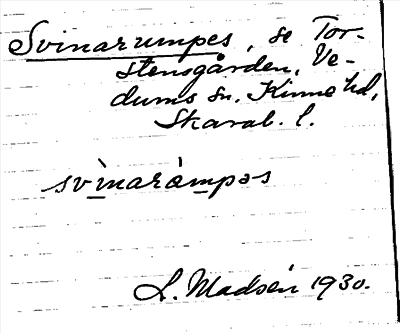 Svinarumpes, se Tor-
stensgården, Ve-
dums sn. Kinne hd,
Skarab. l.
svìnaràmpəs
L. Madsén 1930.